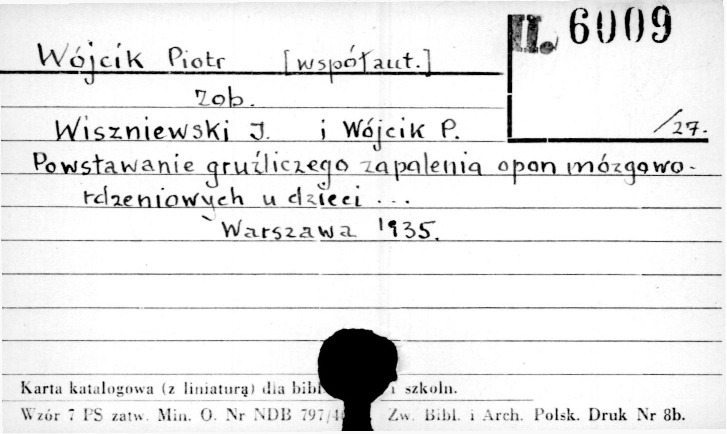 II. 6009
Wójcik Piotr [współaut.]
zob.
Wiszniewski J. i Wójcik P. /27.
Powstawanie gruźliczego zapalenia opon mózgowo-
rdzeniowych u dzieci ...
Warszawa 1935.
Karta katalogowa (z liniaturą) dla bibl. i szkoln.
Wzór 7 PS zatw. Min. O. Nr NDB 797/ Zw. Bibl. i Arch. Polsk. Druk Nr 8b.